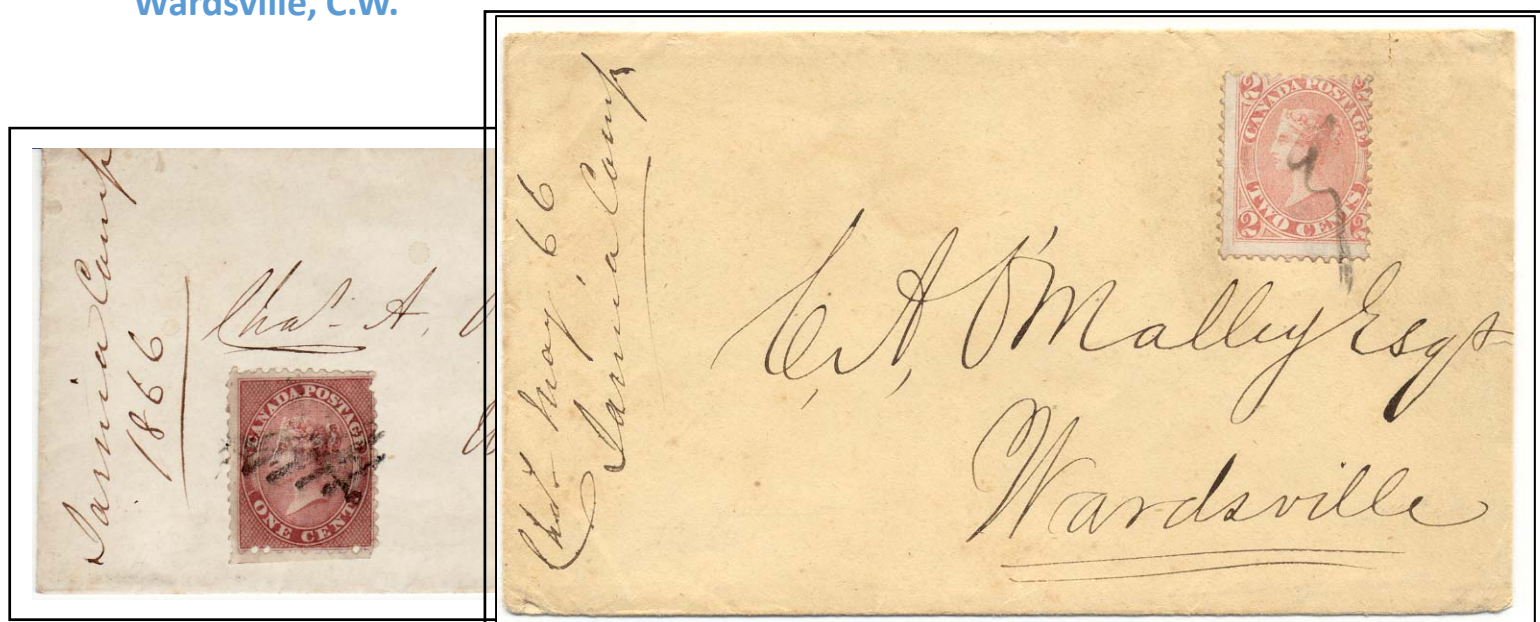 Wardsville, C.W.
Sarnia Camp
1866
Chas. A.
CANADA POSTAGE
ONE CENT
May '66
Sarnia Camp
2 CANADA POSTAGE 2
2 TWO CENTS 2
C, A, O'Malley Esqr
Wardsville